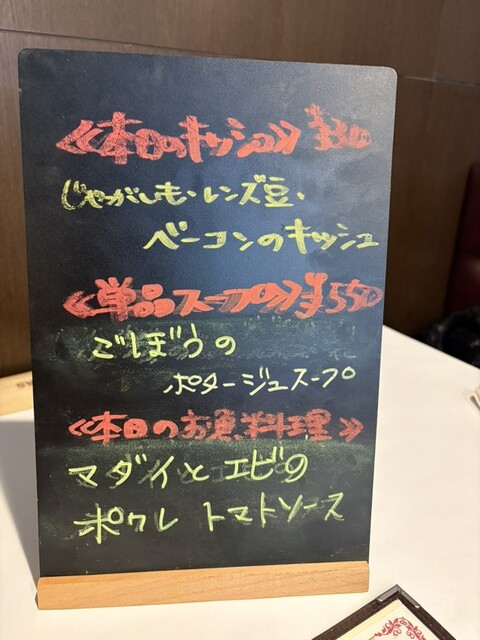 ≪本日のキッシュ≫
じゃがいも・レンズ豆・
ベーコンのキッシュ
≪単品スープ≫ ¥550
ごぼうの
ポタージュスープ
≪本日のお魚料理≫
マダイとエビの
ポワレ トマトソース